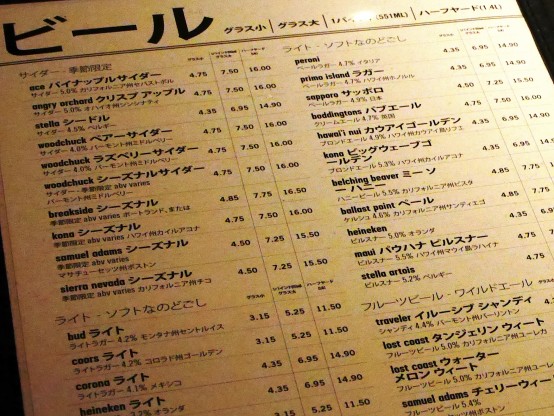 ビール
グラス小 | グラス大 | 1パイント(551ML) | ハーフヤード(1.4L)
サイダー・季節限定
ace パイナップルサイダー 4.75 7.50 16.00
サイダー 5.0% カリフォルニア州セバストポル
angry orchard クリスプ アップル 4.75 7.50 16.00
サイダー 5.0% オハイオ州シンシナティ
stella シードル 4.35 6.95 14.90
サイダー 4.5% ベルギー
woodchuck ペアーサイダー 4.75 7.50 16.00
サイダー 4.0% バーモント州ミドルベリー
woodchuck ラズベリーサイダー 4.75 7.50 16.00
サイダー 4.0% バーモント州ミドルベリー
woodchuck シーズナルサイダー 4.75 7.50 16.00
サイダー・季節限定 abv varies
バーモント州ミドルベリー
breakside シーズナル 4.85 7.75 16.50
季節限定 abv varies ポートランド、または
kona シーズナル 4.75 7.50 16.00
季節限定 abv varies ハワイ州カイルアコナ
samuel adams シーズナル 4.50 7.25 15.50
季節限定 abv varies
マサチューセッツ州ボストン
sierra nevada シーズナル 4.50 7.25 15.50
季節限定 abv varies カリフォルニア州チコ
ライト・ソフトなのどごし
bud ライト 3.15 5.25 11.50
ライトラガー 4.2% モンタナ州セントルイス
coors ライト 3.15 5.25 11.50
ライトラガー 4.2% コロラド州ゴールデン
corona ライト 4.35 6.95 14.90
ライトラガー 4.1% メキシコ
heineken ライト 4.35 6.95 14.90
3.2% オランダ
3.15 5.25 11.50
ライト・ソフトなのどごし
peroni 4.35 6.95 14.90
ペールラガー 4.7% イタリア
primo island ラガー 4.35 6.95 14.90
ペールラガー 4.7% ハワイ州ホノルル
sapporo サッポロ 4.50 7.25 15.50
ペールラガー 4.9% 日本
boddingtons パブエール 4.75 7.50 16.00
クリームエール 4.7% 英国
hawai'i nui カウアイゴールデン 4.35 6.95 14.90
ブロンドエール 4.9% ハワイ州カウアイ島リフエ
kona ビッグウェーブゴ
ールデン 4.35 6.95
ブロンドエール 5.3% ハワイ州カイルアコナ
belching beaver ミー ソ
ー ハニー 4.85 7.75
ハニービール 5.5% カリフォルニア州ビスタ
ballast point ペール 4.85 7.75
ケルシュ 4.6% カリフォルニア州サンディエゴ
heineken 4.35
ピルスナー 5.0% オランダ
maui バウハナ ピルスナー 4.75
ピルスナー 5.5% ハワイ州マウイ島ラハイナ
stella artois 4.35
ピルスナー 5.2% ベルギー
フルーツビール・ワイルドエール
traveler イルーシブ シャンディ
シャンディ 4.4% バーモント州バーリントン
lost coast タンジェリン ウィート
フルーツビール 5.0% カリフォルニア州ユーレカ
lost coast ウォーター
メロン ウィート
フルーツビール 5.0% カリフォルニア州ユー
samuel adams チェリーウィー
フルーツビール 5.4%
ボストン